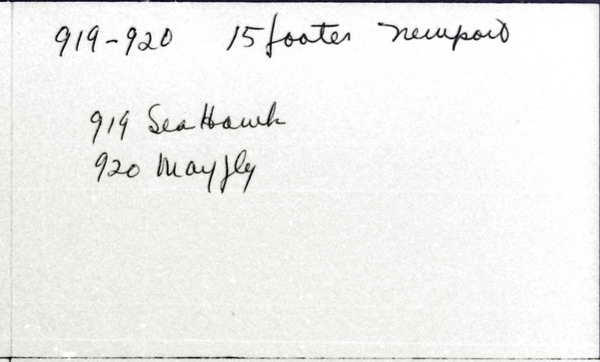 919-920 15 footer Newport
919 Sea Hawk
920 Mayfly